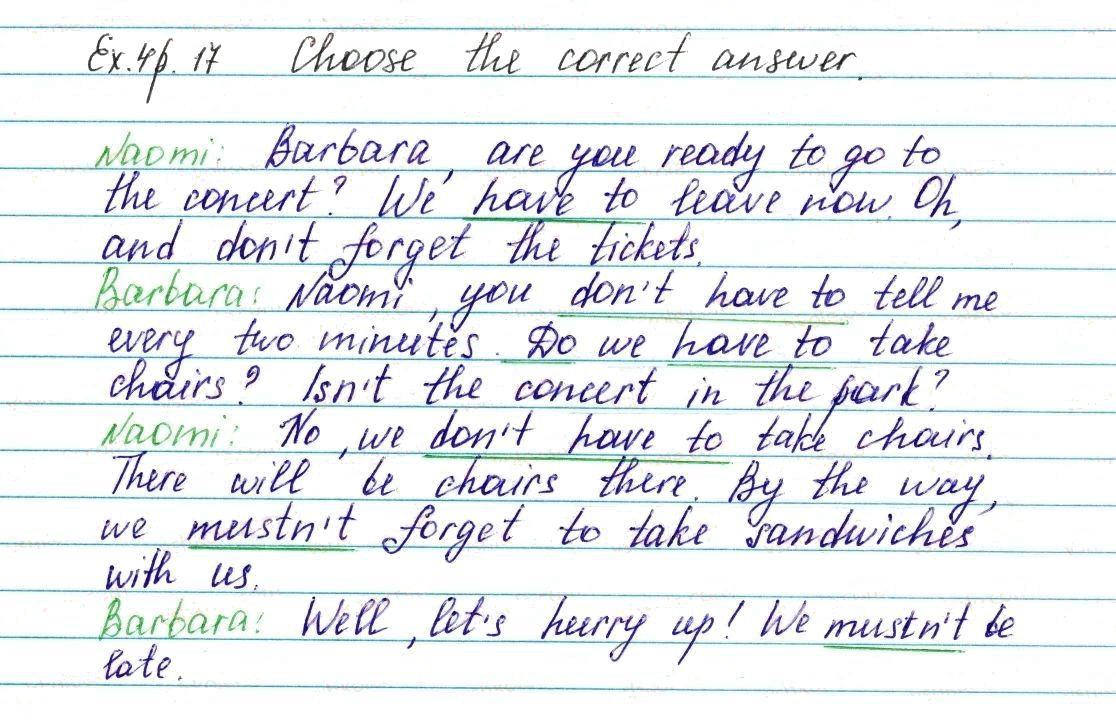 Ex. 4 p. 17 Choose the correct answer.
Naomi: Barbara, are you ready to go to
the concert? We have to leave now. Oh,
and don't forget the tickets.
Barbara: Naomi, you don't have to tell me
every two minutes. Do we have to take
chairs? Isn't the concert in the park?
Naomi: No, we don't have to take chairs.
There will be chairs there. By the way,
we mustn't forget to take sandwiches
with us.
Barbara: Well, let's hurry up! We mustn't be
late.